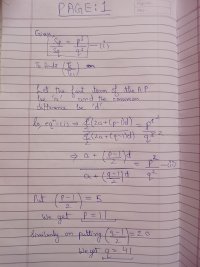 PAGE:1
Given,
Sp/Sq = p²/q² —(i)
To find,
Let the first term of the A.P
be 'a' and the common
difference be 'd'
by eqⁿ (i) ⇒ p/2(2a+(p-1)d) / q/2(2a+(q-1)d) = p²/q²
⇒ a + (p-1/2)d / a + (q-1/2)d = p²/q² —(ii)
Put (p-1/2) = 5
We get p = 11
Similarly on putting (q-1/2) = 20
We get q = 41